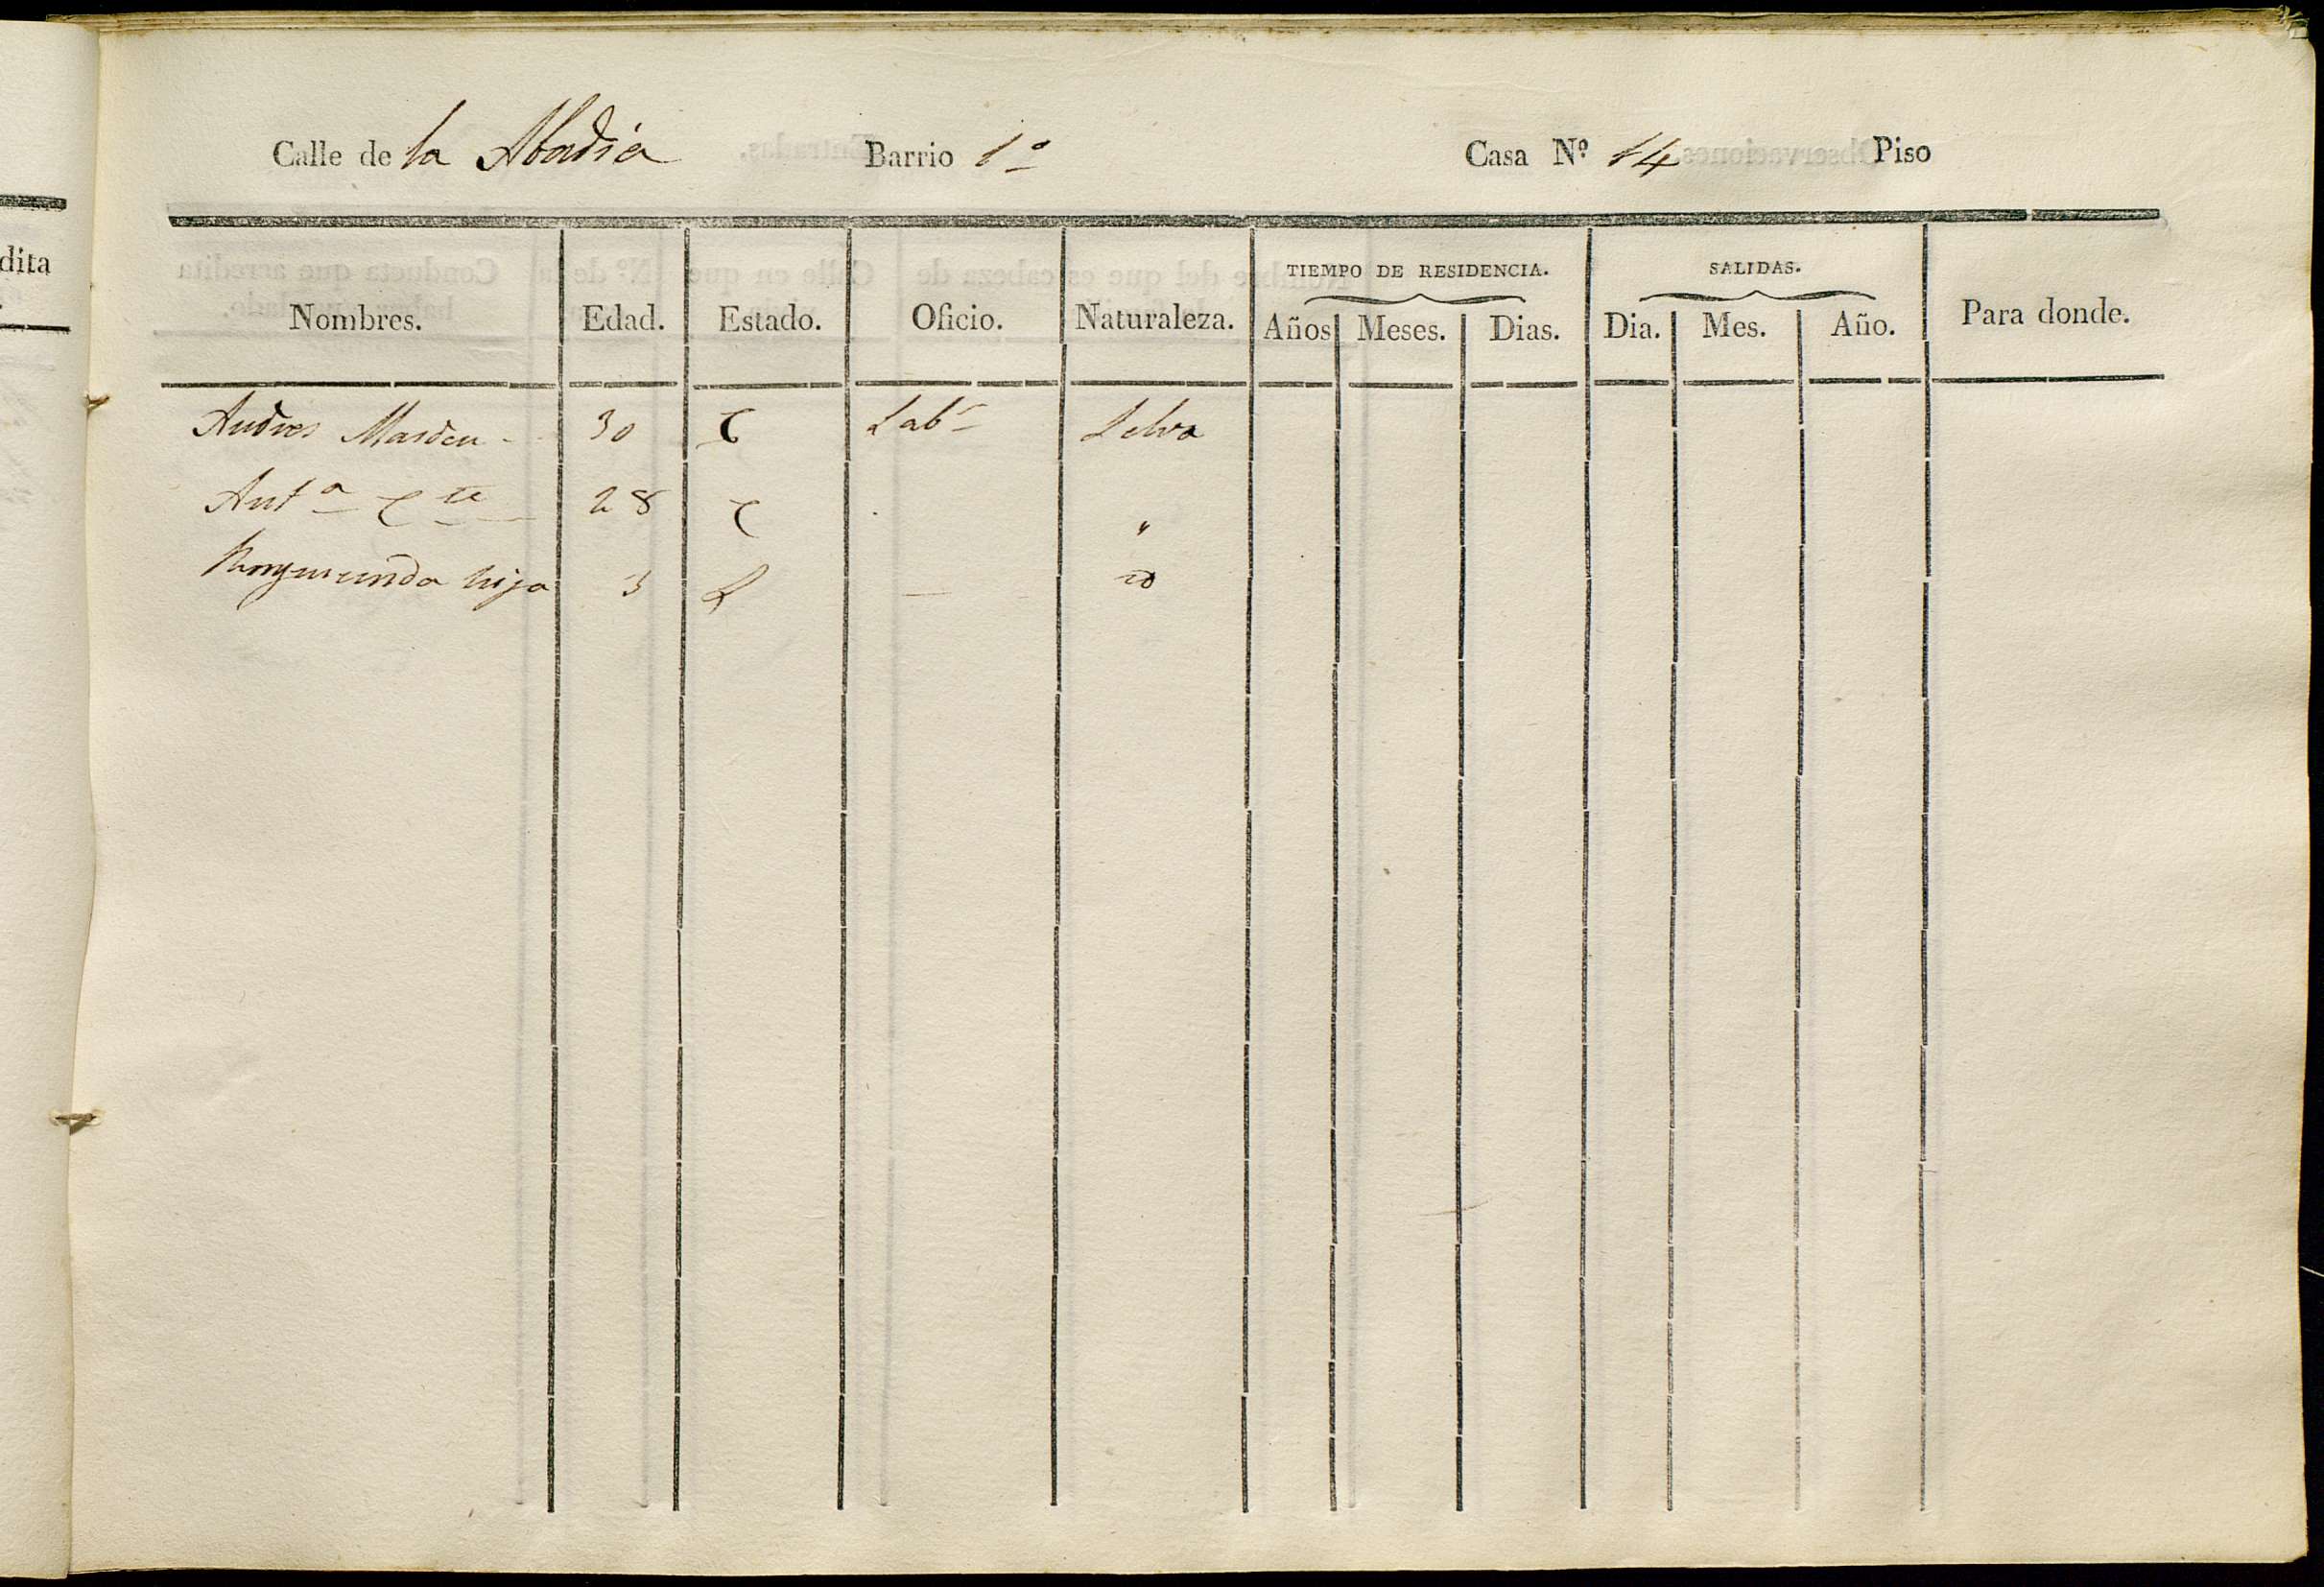 dita
Calle de la Abadia Barrio 1º Casa Nº 14 Piso
Nombres. Edad. Estado. Oficio. Naturaleza. TIEMPO DE RESIDENCIA. Años Meses. Dias. SALIDAS. Dia. Mes. Año. Para donde.
Andres 30 C Labr Selva
Anta C te 28 C "
Raymunda hija 3 S id